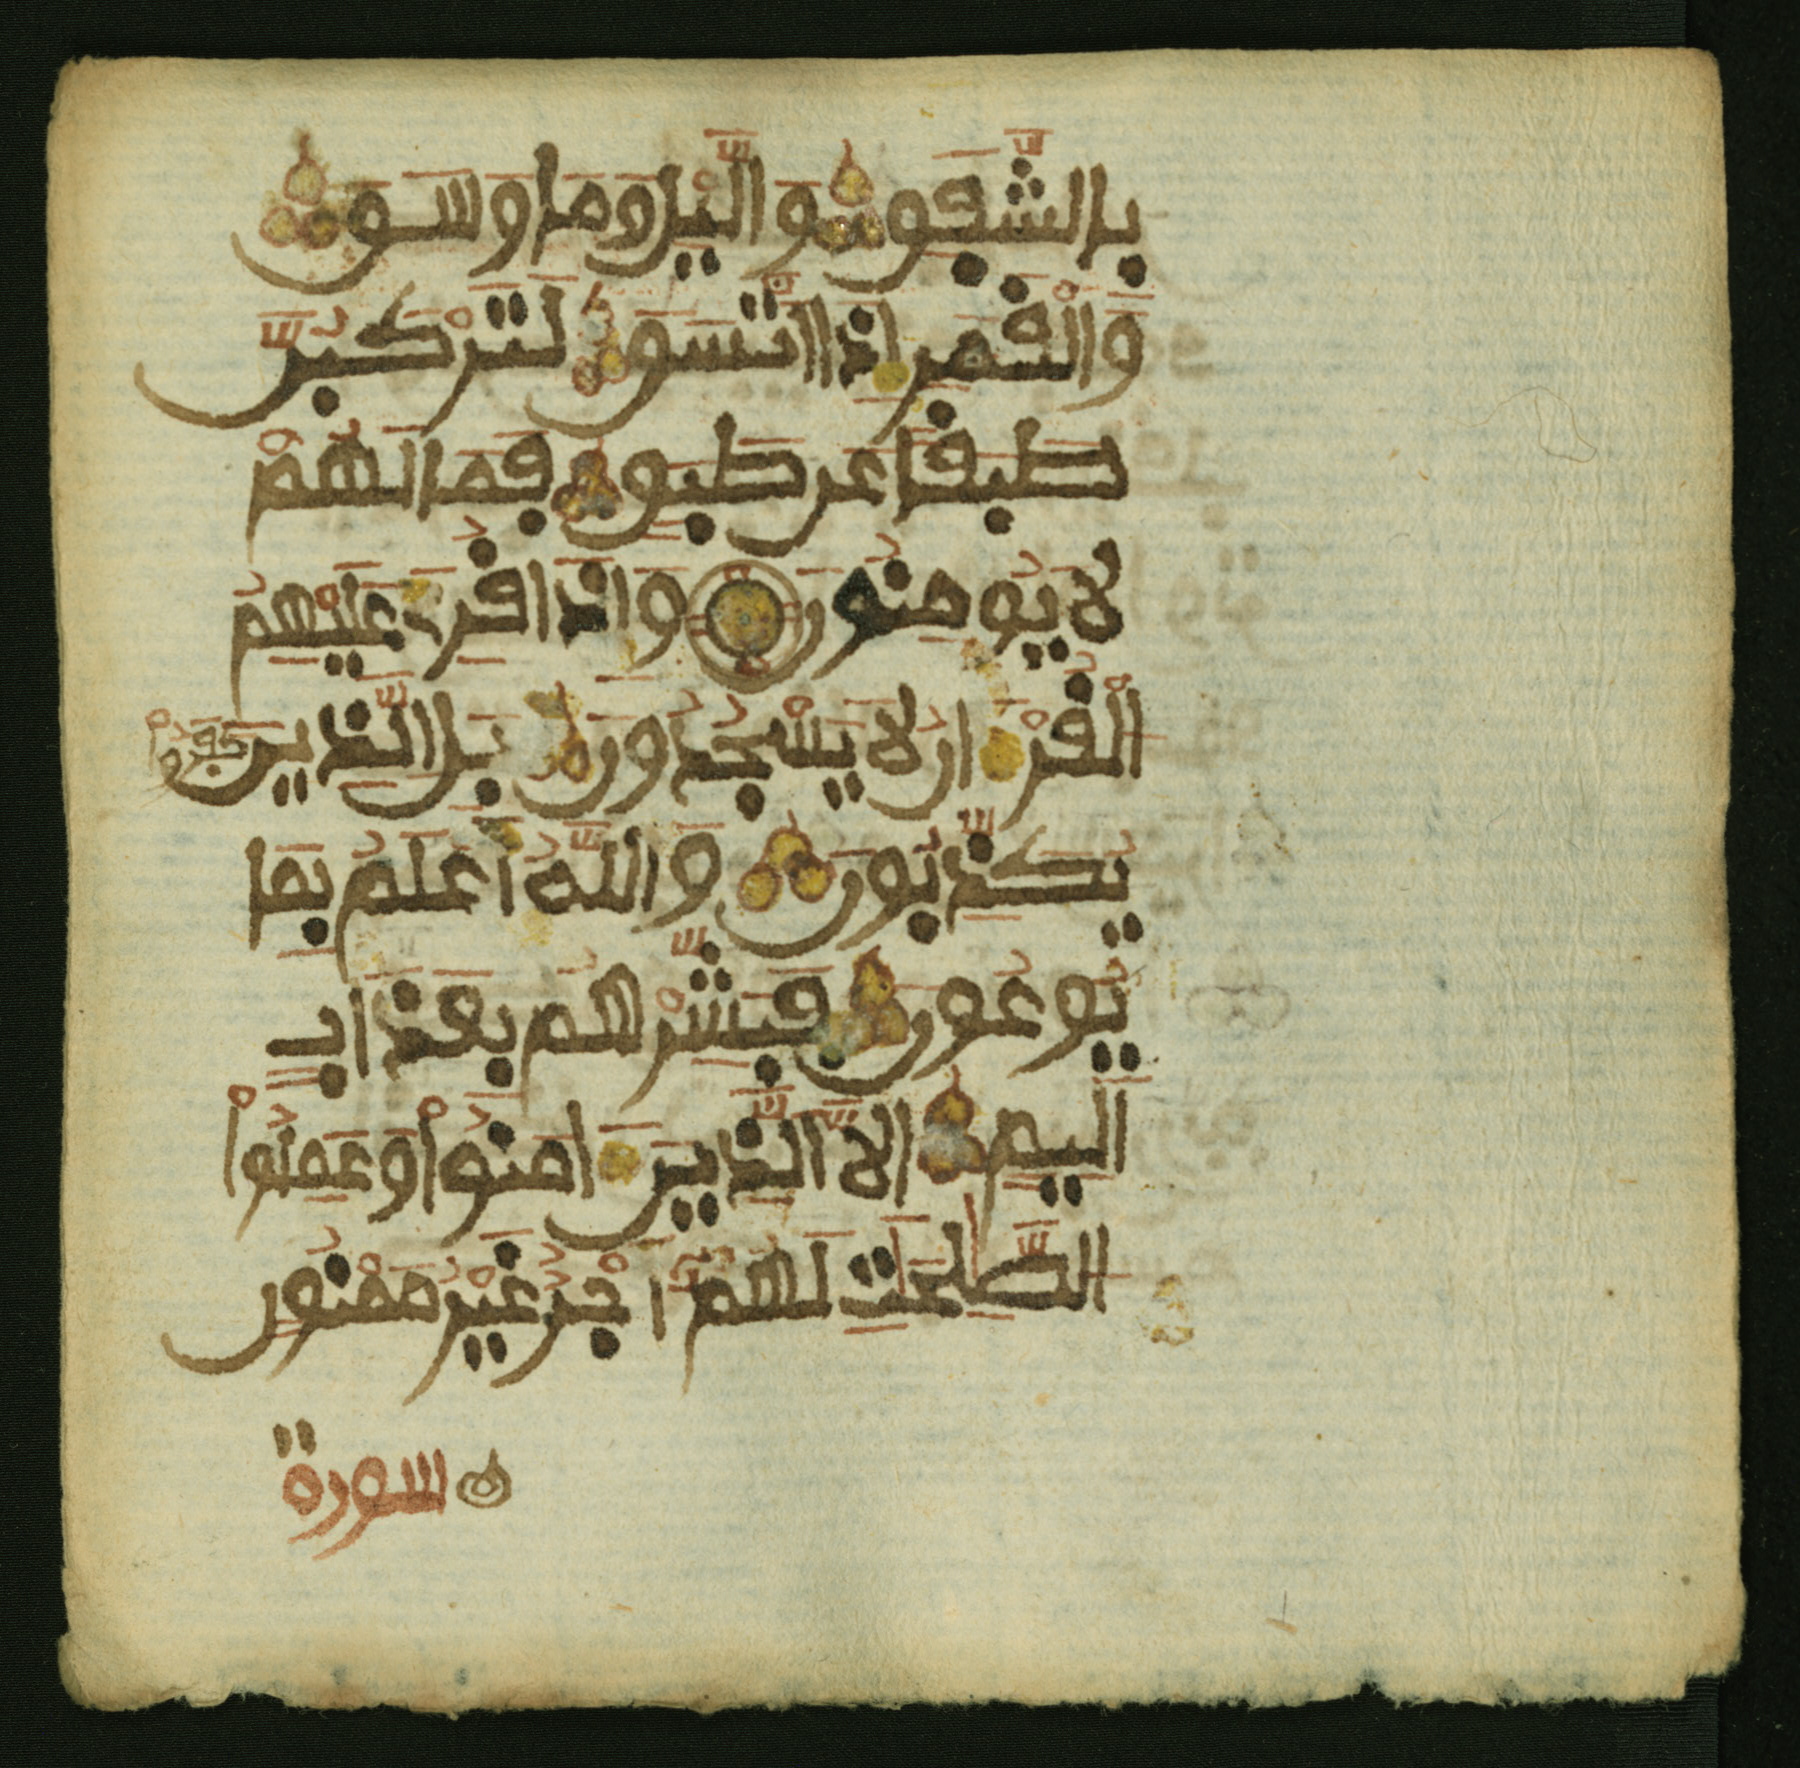 بالشفق واليل وما وسق
والقمر اذا اتسق لتركبن
طبقا عن طبق فما لهم
لا يومنون واذا قرئ عليهم
القرءان لا يسجدون بل الذين كفروا
يكذبون والله أعلم بما
يوعون فبشرهم بعذاب
اليم الا الذين ءامنوا وعملوا
الصلحت لهم أجر غير ممنون
سورة